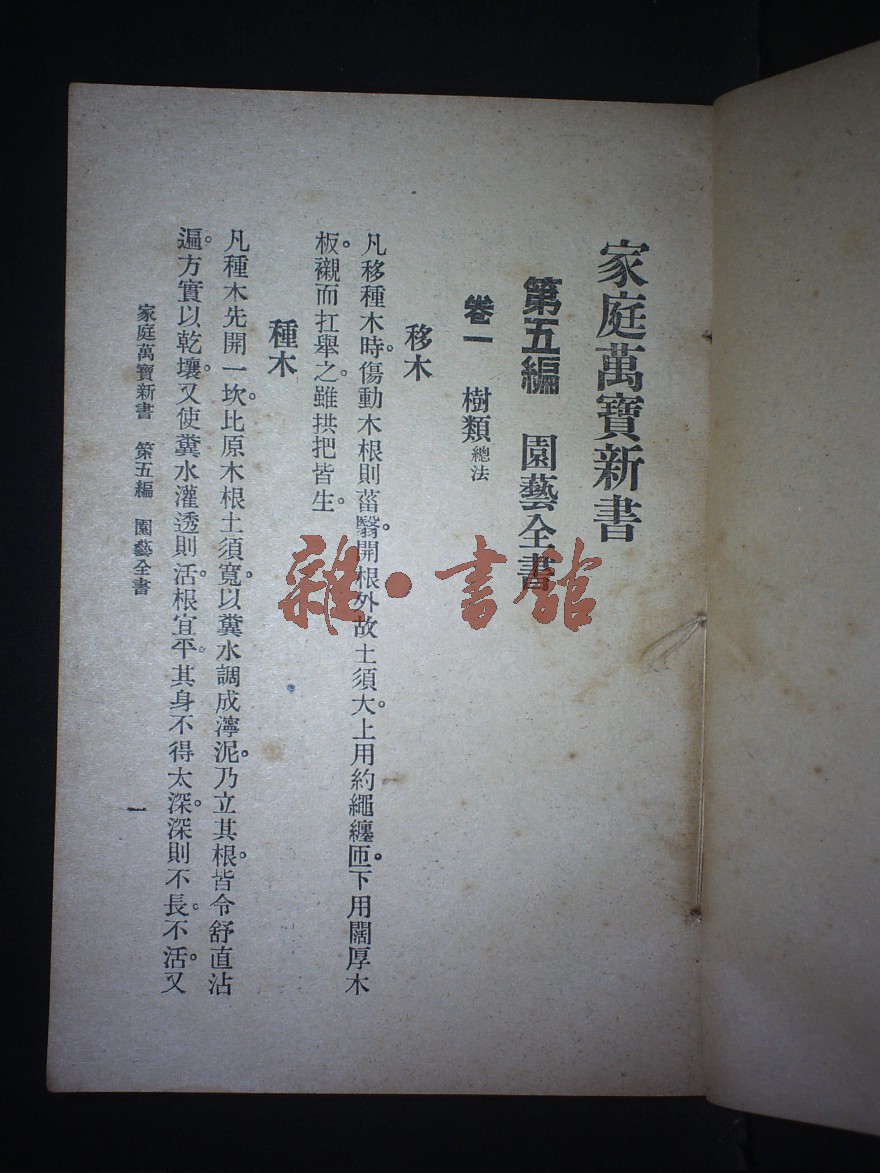 家庭萬寶新書
第五編　園藝全書
卷一　樹類總法
移木
凡移種木時。傷動木根則菑翳。開根外故土須大。上用約繩纏匝。下用闊厚木
板。襯而扛舉之。雖拱把皆生。
種木
凡種木先開一坎。比原木根土須寬。以糞水調成濘泥。乃立其根。皆令舒直沾
遍。方實以乾壤。又使糞水灌透則活。根宜平。其身不得太深。深則不長。不活。又
家庭萬寶新書　第五編　園藝全書
一
雜·書館